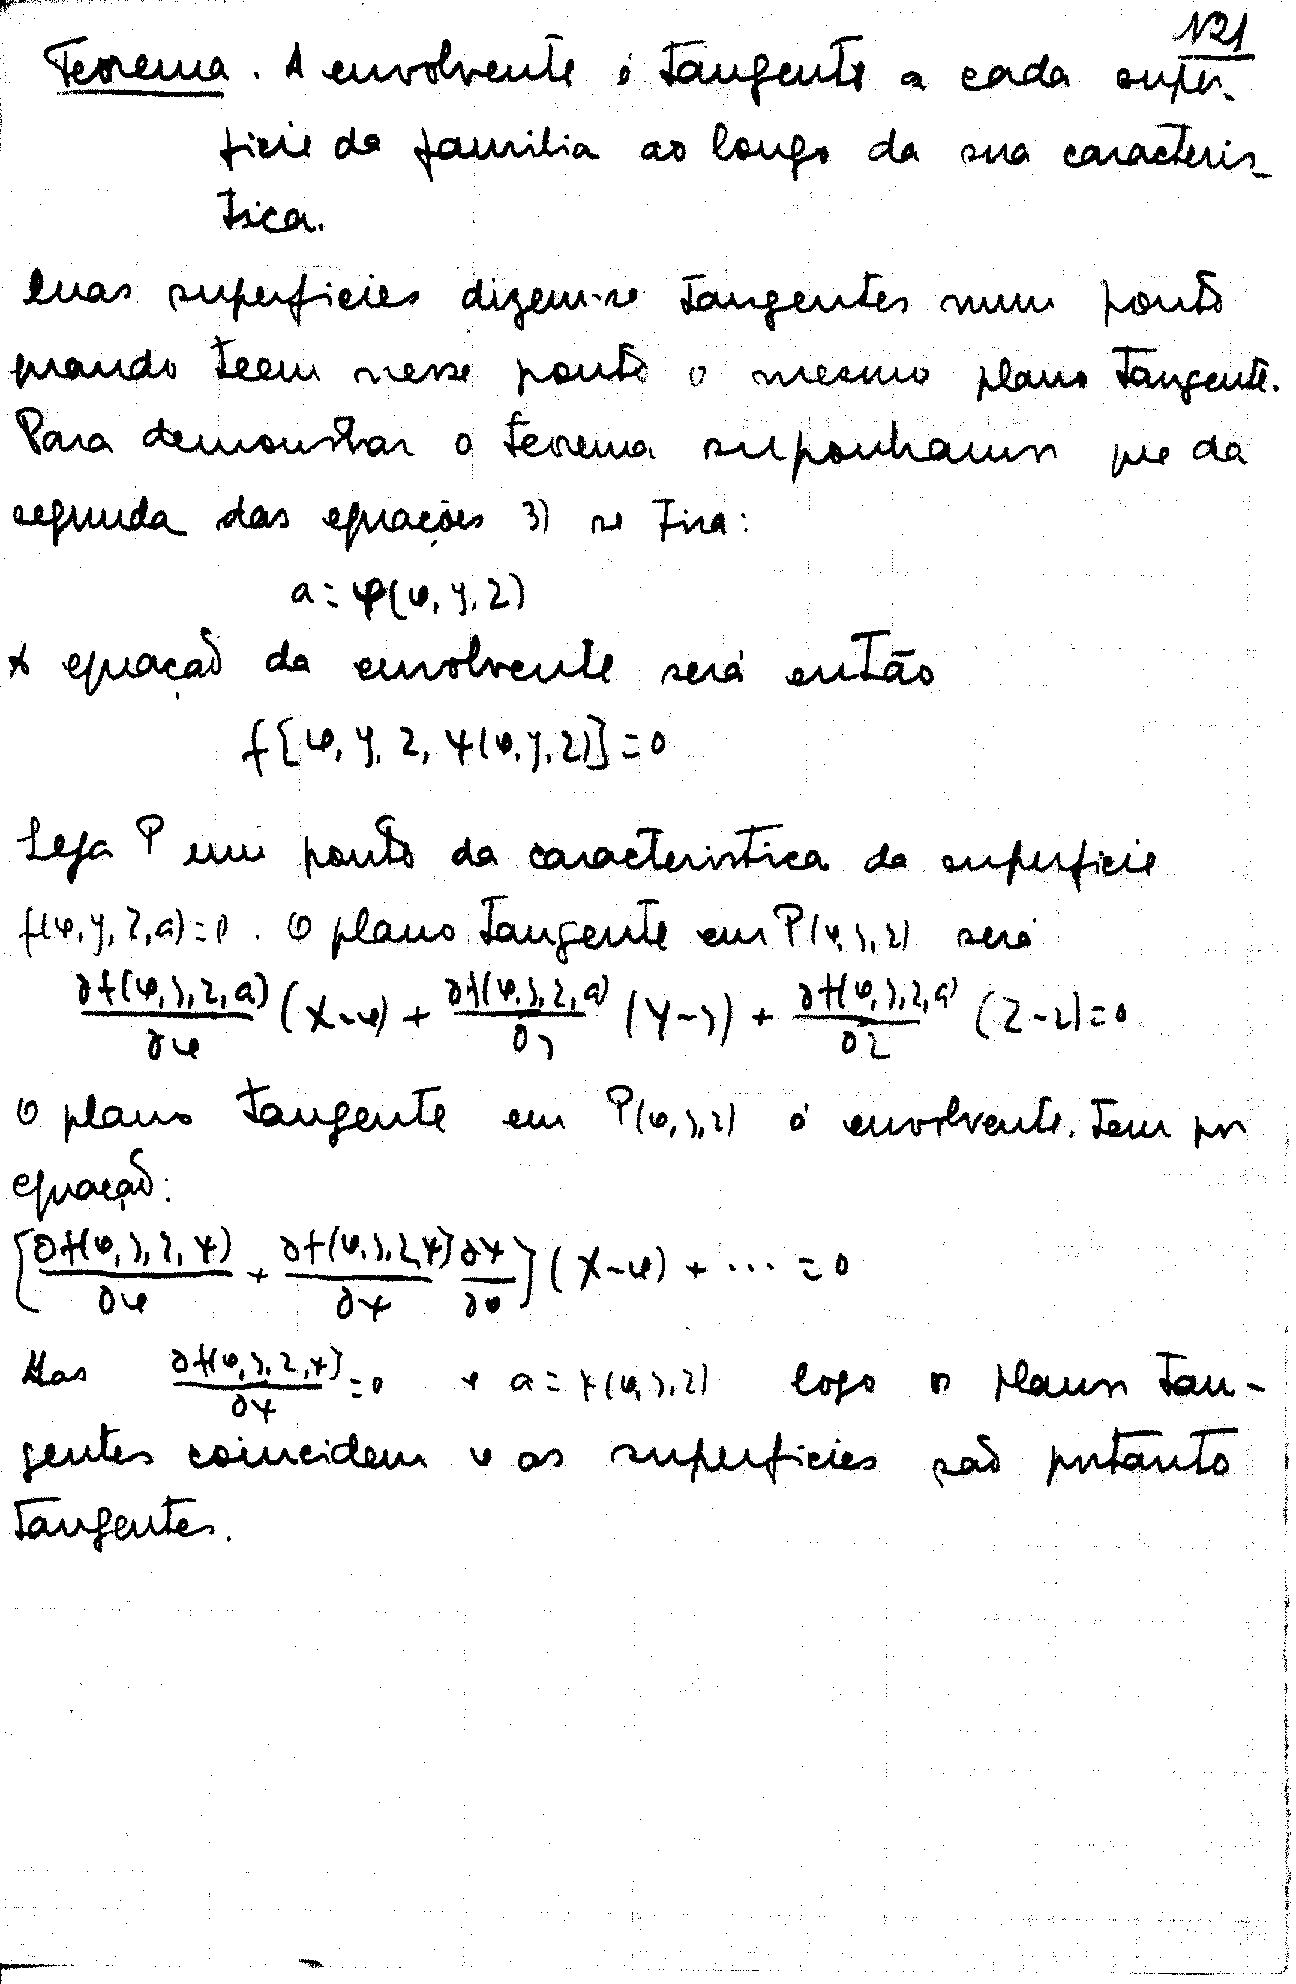 121
Teorema. A envolvente é tangente a cada super-
ficie da familia ao longo da sua caracteris-
tica.
Duas superficies dizem-se tangentes num ponto
quando teem nesse ponto o mesmo plano tangente.
Para demonstrar o teorema suponhamos que da
segunda das equações 3) se tira:
a = ψ(x, y, z)
A equação da envolvente será então
f[x, y, z, ψ(x, y, z)] = 0
Seja P um ponto da caracteristica da superficie
f(x, y, z, a) = 0. O plano tangente em P(x, y, z) será
∂f(x, y, z, a)/∂x (X-x) + ∂f(x, y, z, a)/∂y (Y-y) + ∂f(x, y, z, a)/∂z (Z-z) = 0
O plano tangente em P(x, y, z) á envolvente. Tem por
equação:
[∂f(x, y, z, ψ)/∂x + ∂f(x, y, z, ψ)/∂ψ ∂ψ/∂x] (X-x) + ... = 0
Mas ∂f(x, y, z, ψ)/∂ψ = 0 e a = ψ(x, y, z) logo os planos tan-
gentes coincidem e as superficies são portanto
tangentes.